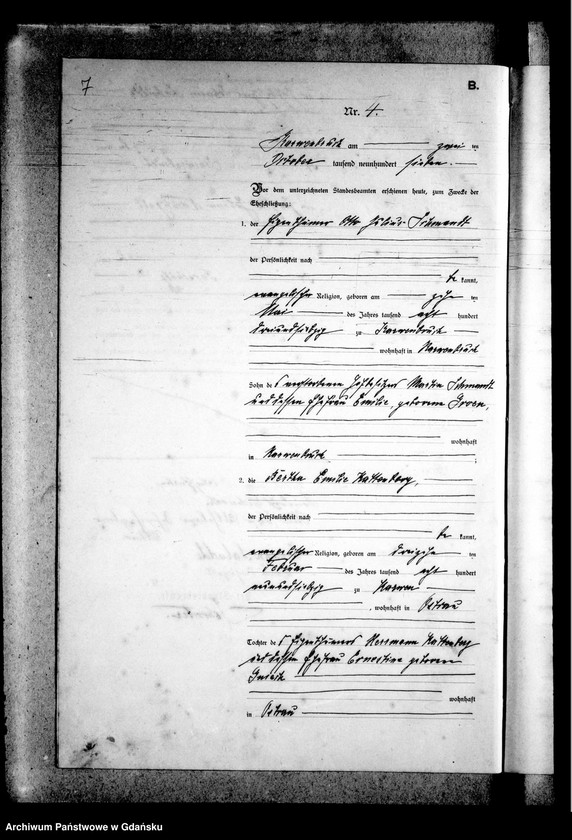 7
B.
Nr. 4.
Karwenbruch am zwei ten
Oktober tausend neunhundert sieben.
Vor dem unterzeichneten Standesbeamten erschienen heute, zum Zwecke der
Eheschließung:
1. der Eigenthümer Otto Julius Schmandt
der Persönlichkeit nach
be kannt,
evangelischer Religion, geboren am zehn ten
Mai des Jahres tausend acht hundert
dreiundsiebzig zu Karwenbruch
wohnhaft in Karwenbruch
Sohn des verstorbenen Hofbesitzers Martin Schmandt
und dessen Ehefrau Emilie, geborene
wohnhaft
in Karwenbruch
2. die Bertha Emilie Kattenberg,
der Persönlichkeit nach
be kannt,
evangelischer Religion, geboren am dreizehn ten
Februar des Jahres tausend acht hundert
neunundsiebzig zu Karwen
, wohnhaft in Ostrau
Tochter des Eigenthümers Hermann Kattenberg
und dessen Ehefrau Ernestine geborene
wohnhaft
in Ostrau
Archiwum Państwowe w Gdańsku